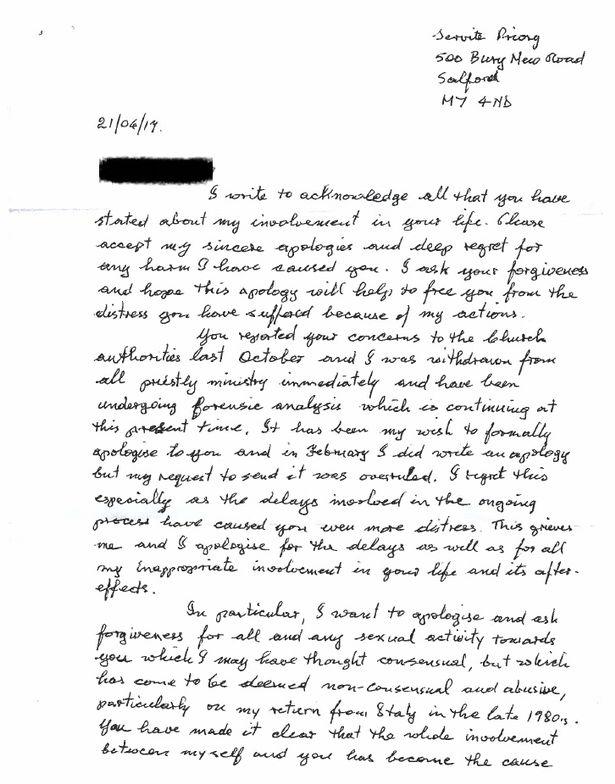 Servite Priory
500 Bury New Road
Salford
M7 4ND
21/04/19.
I write to acknowledge all that you have
started about my involvement in your life. Please
accept my sincere apologies and deep regret for
any harm I have caused you. I ask your forgiveness
and hope this apology will help to free you from the
distress you have suffered because of my actions.
You reported your concerns to the Church
authorities last October and I was withdrawn from
all priestly ministry immediately and have been
undergoing forensic analysis which is continuing at
this present time. It has been my wish to formally
apologise to you and in February I did write an apology
but my request to send it was overruled. I regret this
especially as the delays involved in the ongoing
process have caused you even more distress. This grieves
me and I apologise for the delays as well as for all
my inappropriate involvement in your life and its after-
effects.
In particular, I want to apologise and ask
forgiveness for all and any sexual activity towards
you which I may have thought consensual, but which
has come to be deemed non-consensual and abusive,
particularly on my return from Italy in the late 1980s.
You have made it clear that the whole involvement
between myself and you has become the cause